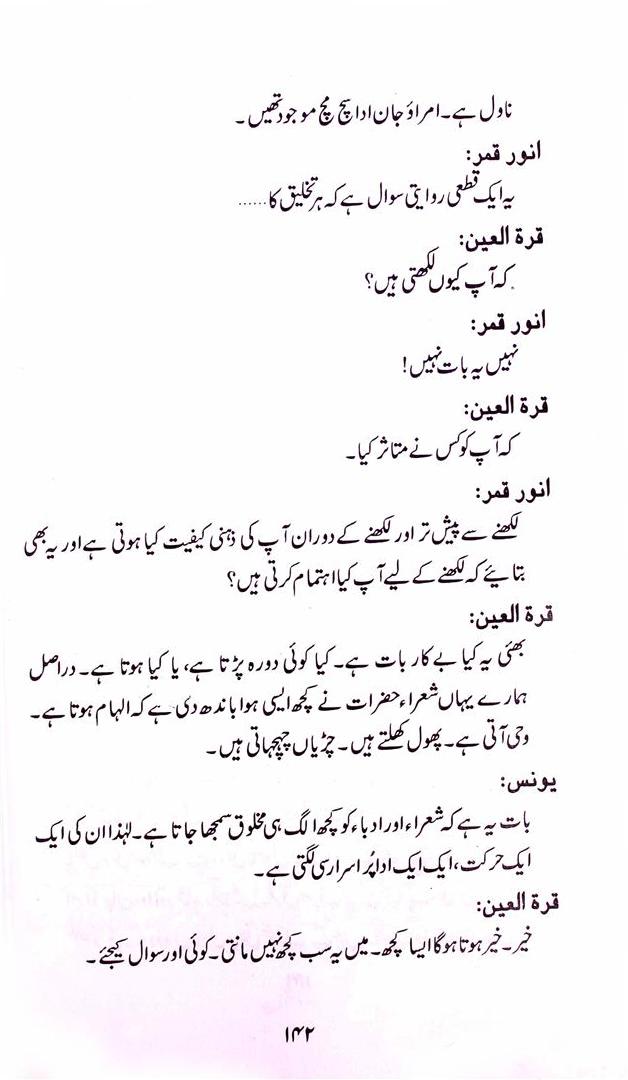 ناول ہے۔ امراؤ جان ادا سچ مچ موجود تھیں۔
انور قمر:
یہ ایک قطعی روایتی سوال ہے کہ ہر تخلیق کا......
قرۃ العین:
کہ آپ کیوں لکھتی ہیں؟
انور قمر:
نہیں یہ بات نہیں!
قرۃ العین:
کہ آپ کو کس نے متاثر کیا۔
انور قمر:
لکھنے سے پیش تر اور لکھنے کے دوران آپ کی ذہنی کیفیت کیا ہوتی ہے اور یہ بھی
بتائیے کہ لکھنے کے لیے آپ کیا اہتمام کرتی ہیں؟
قرۃ العین:
بھئی یہ کیا بے کار بات ہے۔ کیا کوئی دورہ پڑتا ہے، یا کیا ہوتا ہے۔ دراصل
ہمارے یہاں شعراء حضرات نے کچھ ایسی ہوا باندھ دی ہے کہ الہام ہوتا ہے۔
وحی آتی ہے۔ پھول کھلتے ہیں۔ چڑیاں چہچہاتی ہیں۔
یونس:
بات یہ ہے کہ شعراء اور ادباء کو کچھ الگ ہی مخلوق سمجھا جاتا ہے۔ لہٰذا ان کی ایک
ایک حرکت، ایک ایک ادا پُراسرار سی لگتی ہے۔
قرۃ العین:
خیر۔ خیر ہوتا ہوگا ایسا کچھ۔ میں یہ سب کچھ نہیں مانتی۔ کوئی اور سوال کیجئے۔
۱۴۲